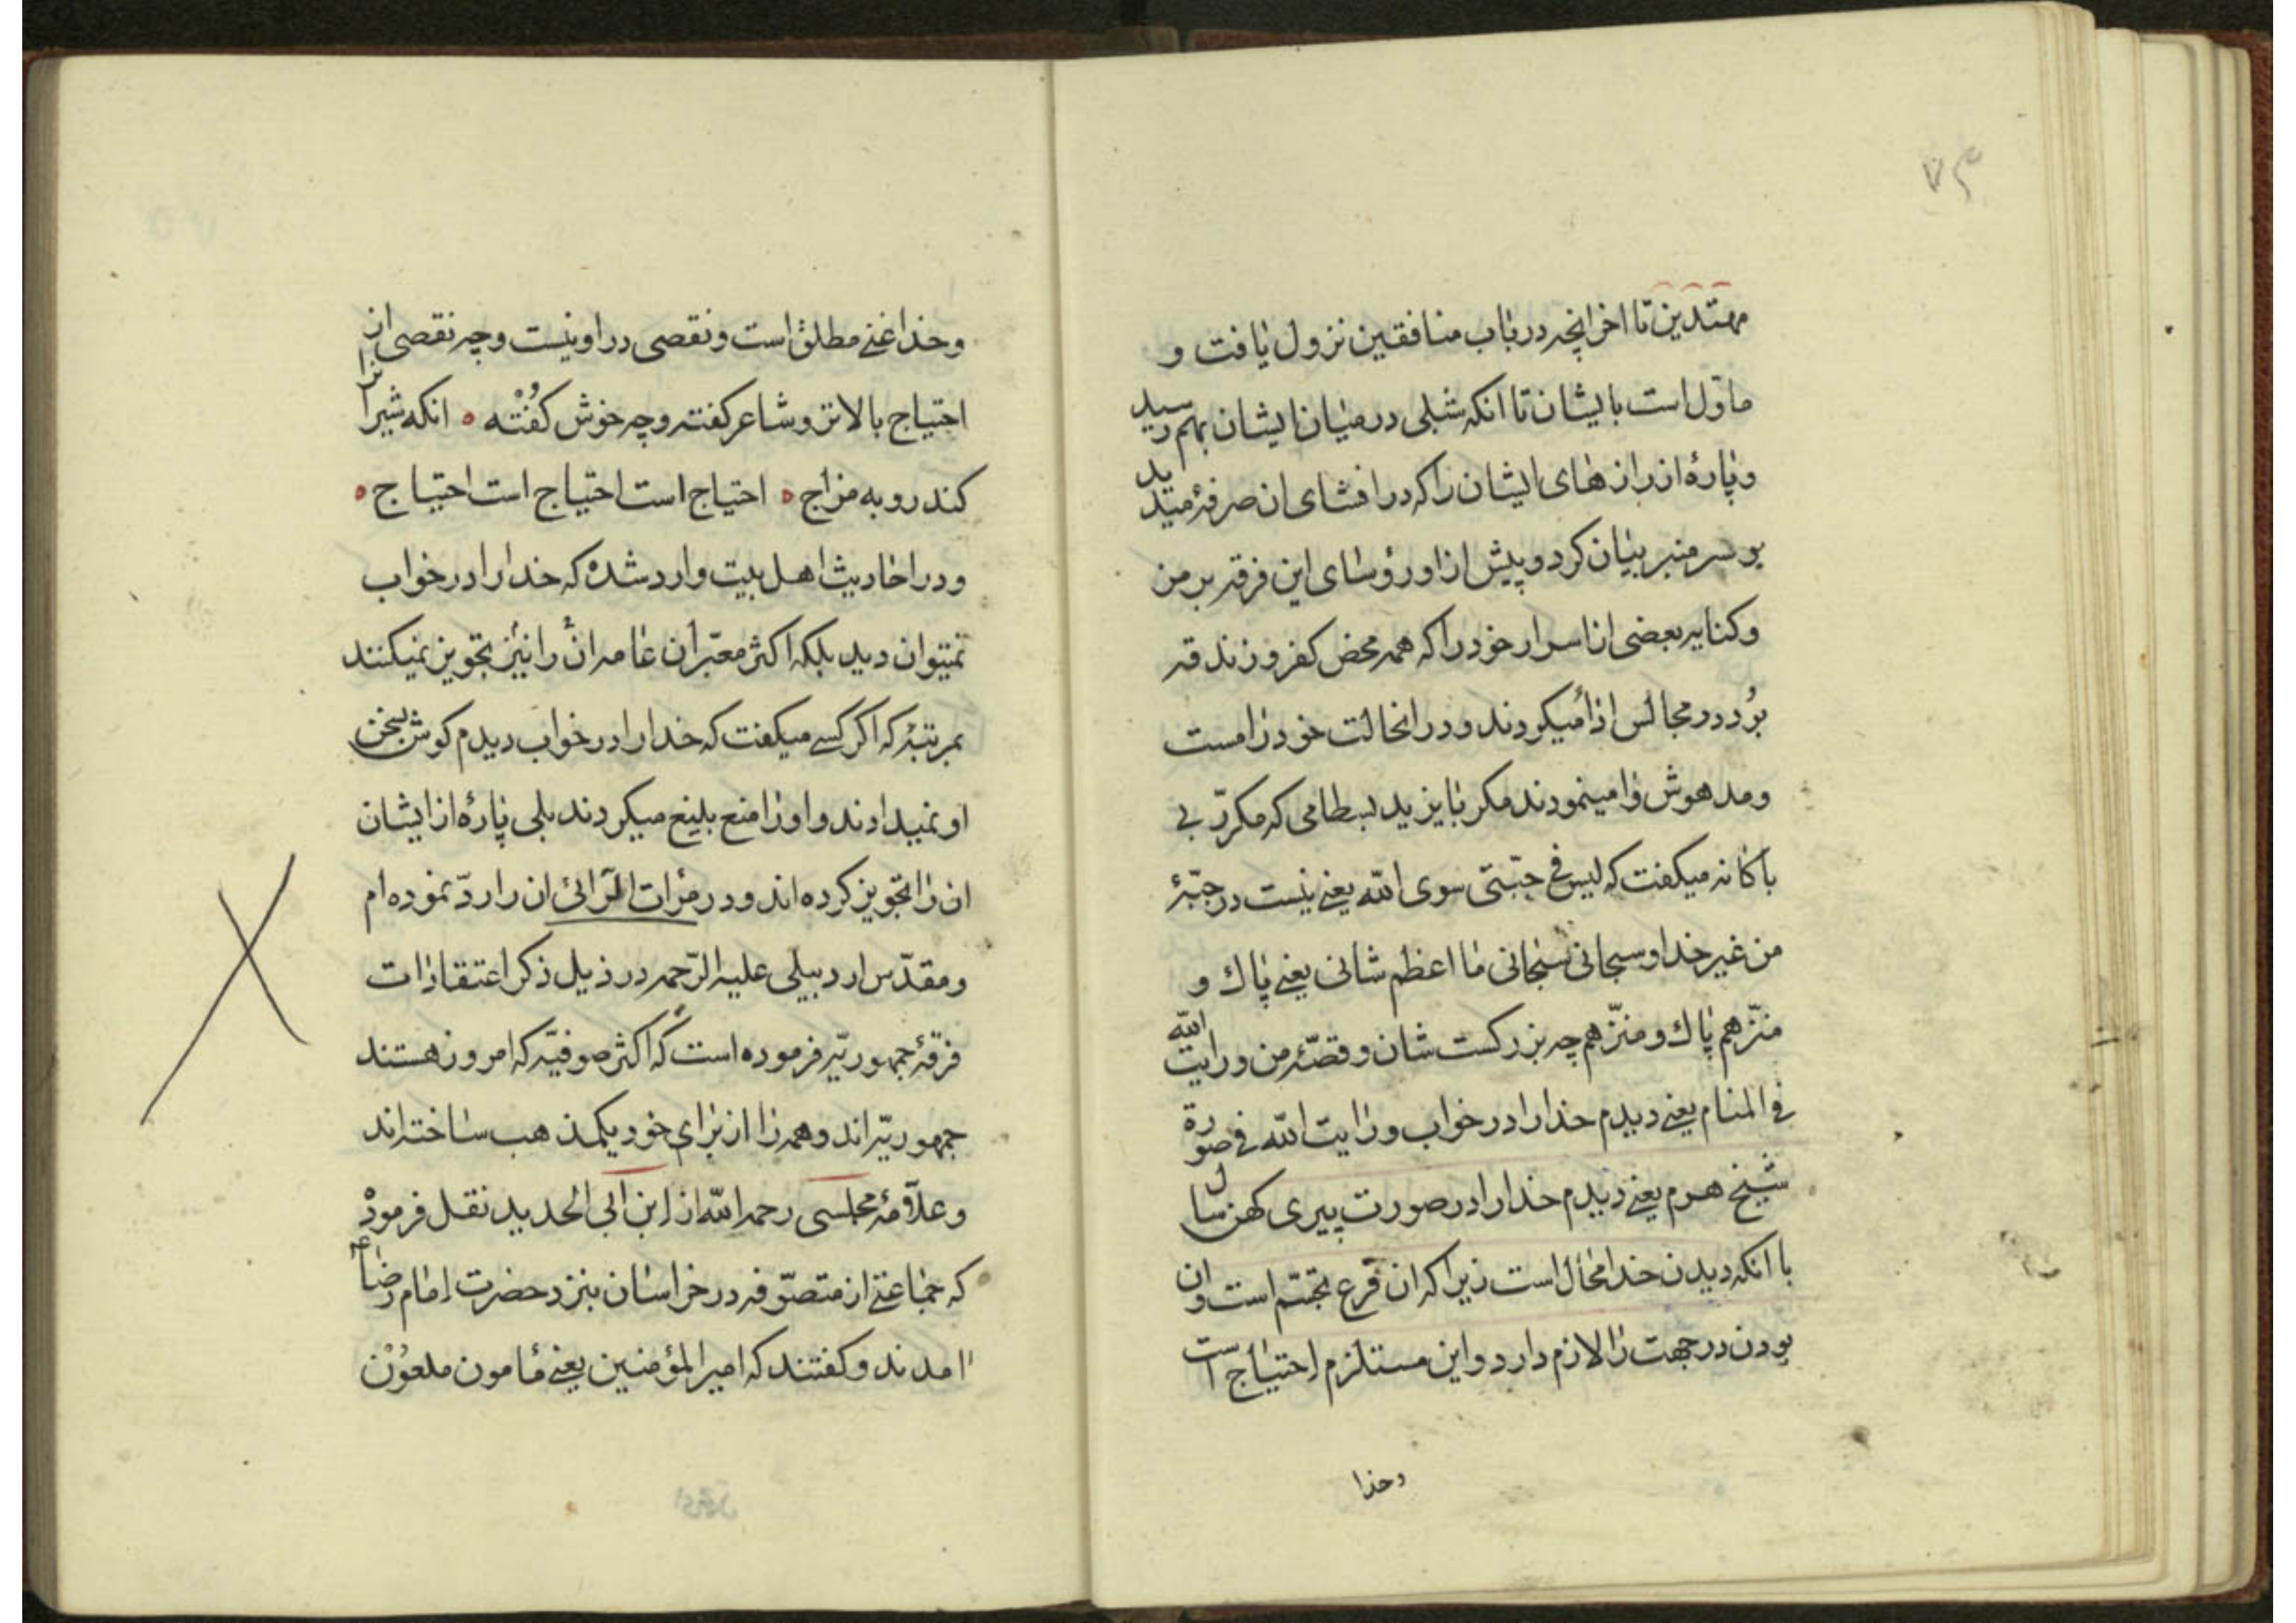 ۷۴
مهتدین تا اخر انچه در باب منافقین نزول یافت و
ماوّل است بایشان تا انکه شبلی در میان ایشان بهم رسید
و پارهٔ از راز های ایشان را که در افشای ان صرفهٔ میدید
بر سر منبر بیان کرد و پیش از او رؤسای این فرقه برمز
و کنایه بعضی از اسرار خود را که همه محض کفر و زندقه
بُود در مجالس اداء میکردند و در انحالت خود را مست
و مدهوش وا مینمودند مکر بایزید بسطامی که مکرّر بی
باکانه میکفت که لیس فی جبّتی سوی الله یعنی نیست در جبّهٔ
من غیر خدا و سبحانی سبحانی ما اعظم شانی یعنی پاك و
منزّهم پاك و منزّهم چه بزرکست شان و قصّهٔ من و رایت الله
فی المنام یعنی دیدم خدا را در خواب و رایت الله فی صورة
شیخ هرم یعنی دیدم خدا را در صورت پیری کهن سال
با انکه دیدن خدا محال است زیرا که ان فرع تجسّم است و ان
بودن در جهت را لازم دارد و این مستلزم احتیاج است
و خدا
و خدا غنی مطلق است و نقصی در او نیست و چه نقصی از
احتیاج بالاتر و شاعر کفته و چه خوش کُفْته ه انکه شیرانرا
کند روبه مزاج ه احتیاج است احتیاج است احتیاج ه
و در احادیث اهل بیت وارد شده که خدا را در خواب
نمیتوان دید بلکه اکثر معبّران عامه ان را نیز تجویز نمیکنند
بمرتبهٔ که اکر کسی میکفت که خدا را در خواب دیدم کوش بسخن
او نمیدادند و او را منع بلیغ میکردند بلی پارهٔ از ایشان
ان را تجویز کرده اند و در مرٰات الرّائی ان را ردّ نموده ام
و مقدّس اردبیلی علیه الرّحمه در ذیل ذکر اعتقادات
فرقهٔ جمهوریّه فرموده است که اکثر صوفیّه که امروز هستند
جمهوریّه اند و همه را از برای خود یکمذهب ساخته اند
و علّامهٔ مجلسی رحمه الله از ابن ابی الحدید نقل فرموده
که جماعتی از متصوّفه در خراسان بنزد حضرت امام رضا ع
امدند و کفتند که امیر المؤمنین یعنی مامون ملعون